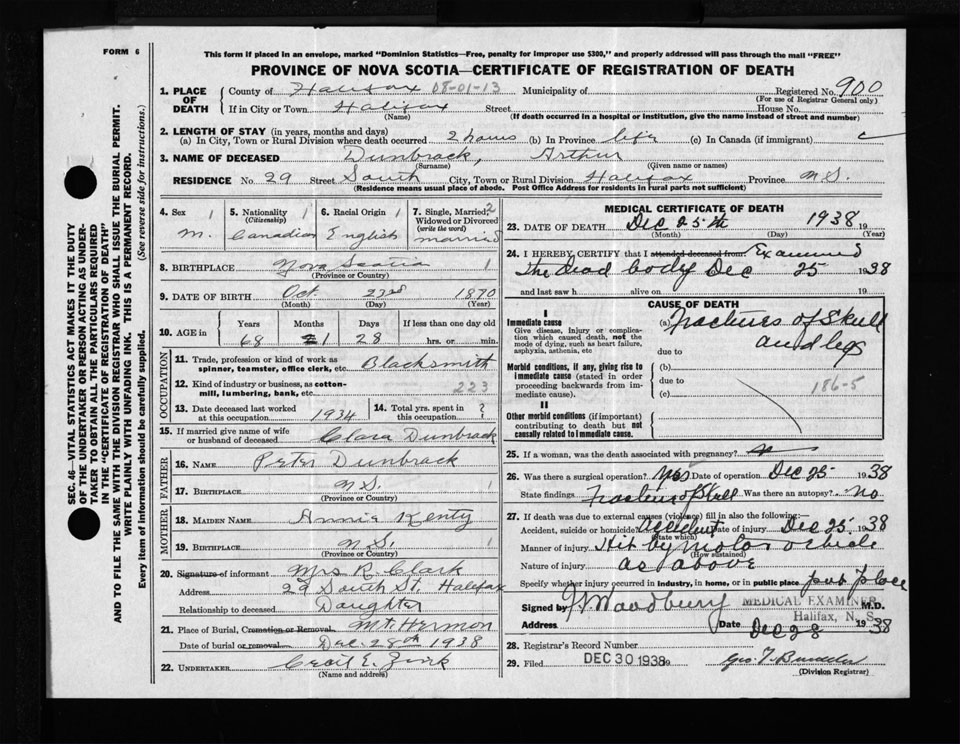 FORM 6
This form if placed in an envelope, marked "Dominion Statistics—Free, penalty for improper use $300," and properly addressed will pass through the mail "FREE"
PROVINCE OF NOVA SCOTIA—CERTIFICATE OF REGISTRATION OF DEATH
SEC. 46—VITAL STATISTICS ACT MAKES IT THE DUTY
OF THE UNDERTAKER OR PERSON ACTING AS UNDER-
TAKER TO OBTAIN ALL THE PARTICULARS REQUIRED
IN THE "CERTIFICATE OF REGISTRATION OF DEATH"
AND TO FILE THE SAME WITH THE DIVISION REGISTRAR WHO SHALL ISSUE THE BURIAL PERMIT.
WRITE PLAINLY WITH UNFADING INK. THIS IS A PERMANENT RECORD.
Every item of information should be carefully supplied. (See reverse side for instructions.)
1. PLACE OF DEATH County of Halifax 08-01-13 Municipality of Registered No. 900
(For use of Registrar General only)
If in City or Town Halifax Street House No.
(Name) (If death occurred in a hospital or institution, give the name instead of street and number)
2. LENGTH OF STAY (in years, months and days)
(a) In City, Town or Rural Division where death occurred 2 hours (b) In Province life (c) In Canada (if immigrant)
3. NAME OF DECEASED Dunbrack, Arthur
(Surname) (Given name or names)
RESIDENCE No. 29 Street South City, Town or Rural Division Halifax Province N.S.
(Residence means usual place of abode. Post Office Address for residents in rural parts not sufficient)
4. Sex 1 M.
5. Nationality 1 (Citizenship) Canadian
6. Racial Origin 1 English
7. Single, Married, 2 Widowed or Divorced (write the word) married
8. BIRTHPLACE Nova Scotia 1
(Province or Country)
9. DATE OF BIRTH Oct 23rd 1870
(Month) (Day) (Year)
10. AGE in Years Months Days If less than one day old
68 1 28 hrs. or min.
OCCUPATION
11. Trade, profession or kind of work as spinner, teamster, office clerk, etc. Blacksmith
12. Kind of industry or business, as cotton-mill, lumbering, bank, etc. 223
13. Date deceased last worked at this occupation 1934
14. Total yrs. spent in this occupation ?
15. If married give name of wife or husband of deceased Clara Dunbrack
FATHER
16. NAME Peter Dunbrack
17. BIRTHPLACE N.S. 1
(Province or Country)
MOTHER
18. MAIDEN NAME Annie Kenty
19. BIRTHPLACE N.S. 1
(Province or Country)
20. Signature of informant Mrs R. Clark
Address 29 South St. Halifax
Relationship to deceased Daughter
21. Place of Burial, Cremation or Removal Mt. Hermon
Date of burial or removal Dec. 28th 1938
22. UNDERTAKER Cecil E. Zink
(Name and address)
MEDICAL CERTIFICATE OF DEATH
23. DATE OF DEATH Dec 25th 1938 19
(Month) (Day) (Year)
24. I HEREBY CERTIFY that I attended deceased from: Examined
the dead body Dec 25 1938
and last saw h alive on 19
CAUSE OF DEATH
I
Immediate cause
Give disease, injury or complication which caused death, not the mode of dying, such as heart failure, asphyxia, asthenia, etc
(a) Fractures of Skull
and legs
due to
Morbid conditions, if any, giving rise to immediate cause (stated in order proceeding backwards from immediate cause).
(b)
due to
(c) 186-5
II
Other morbid conditions (if important) contributing to death but not causally related to immediate cause.
25. If a woman, was the death associated with pregnancy?
26. Was there a surgical operation? Date of operation Dec 25 1938
State findings Fracture of Skull Was there an autopsy? No
27. If death was due to external causes (violence) fill in also the following:—
Accident, suicide or homicide? Accident Date of injury Dec 25 1938
(State which)
Manner of injury Hit by motor vehicle
(How sustained)
Nature of injury as above
Specify whether injury occurred in industry, in home, or in public place pub place
Signed by Woodbury MEDICAL EXAMINER M.D.
Halifax, N. S.
Address Date Dec 28 1938
28. Registrar's Record Number
29. Filed DEC 30 1938
(Division Registrar)